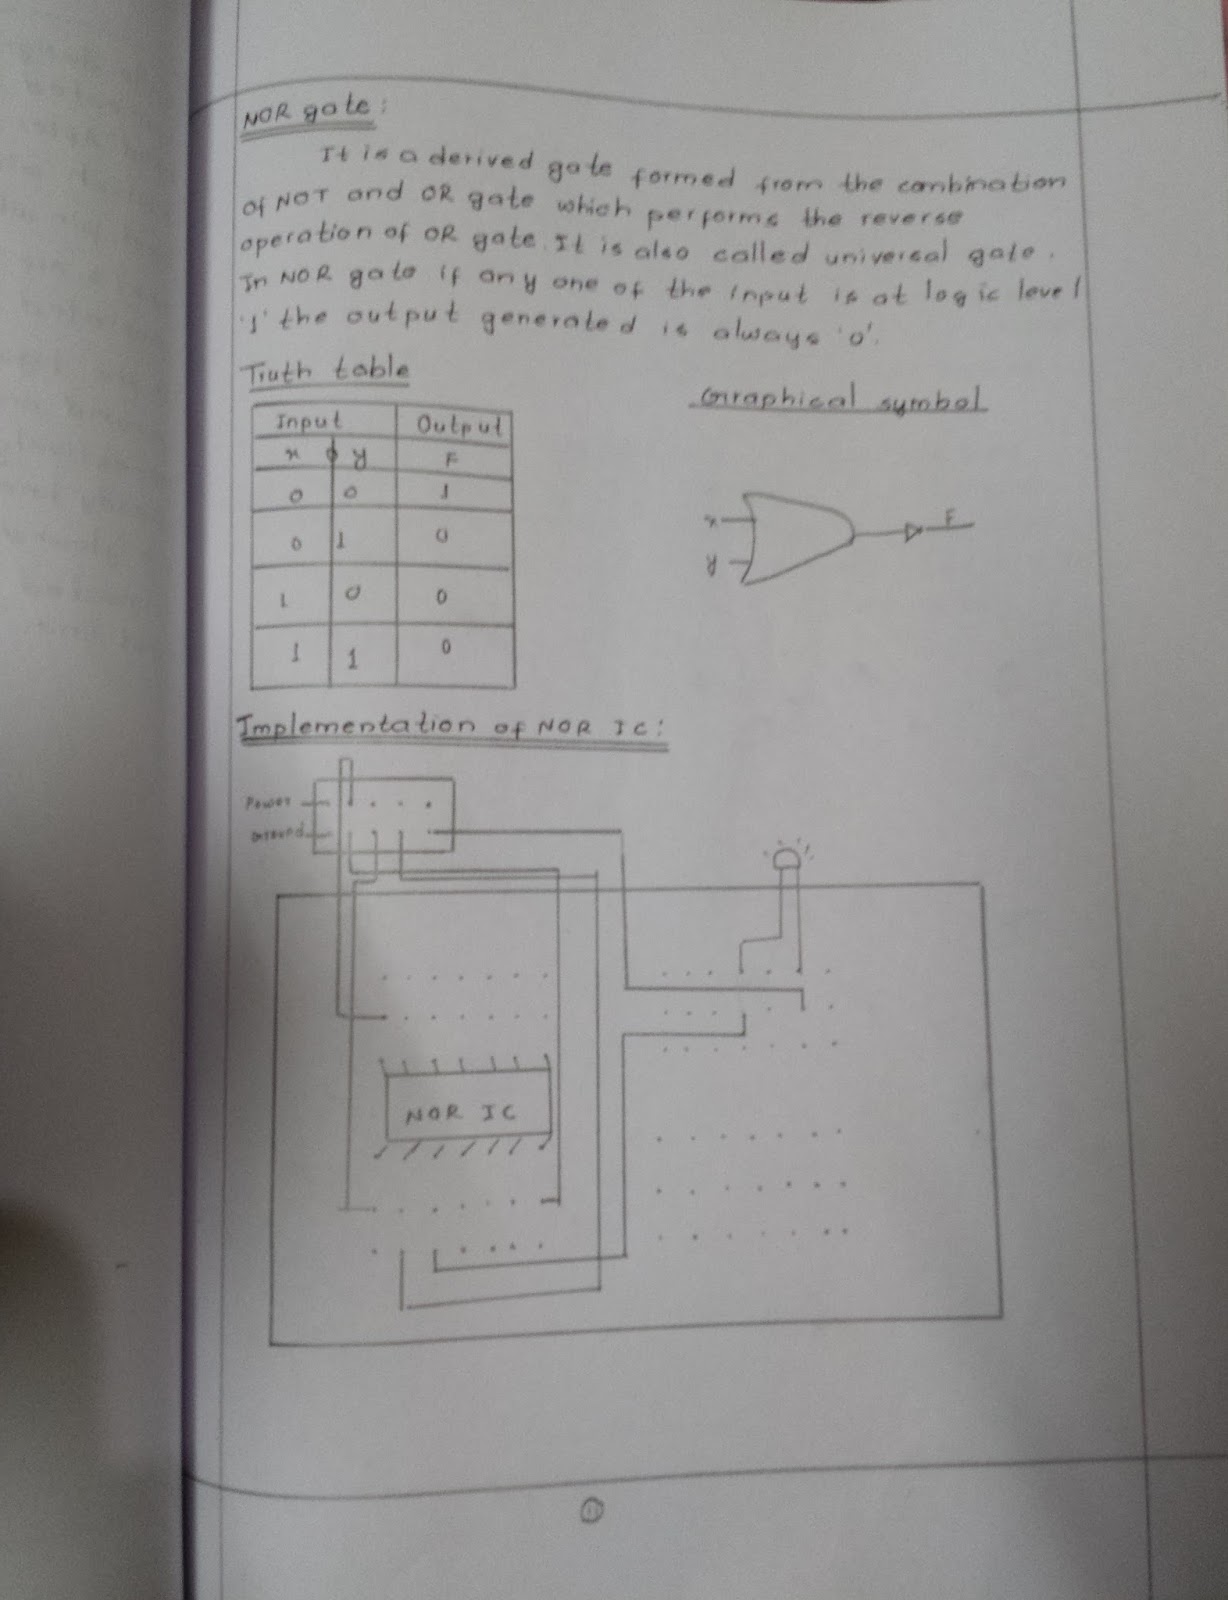 NOR gate:
It is a derived gate formed from the combination
of NOT and OR gate which performs the reverse
operation of OR gate. It is also called universal gate.
In NOR gate if any one of the input is at logic level
'1' the output generated is always '0'.
Truth table
Input Output
x y F
0 0 1
0 1 0
1 0 0
1 1 0
Graphical symbol
x
y
F
Implementation of NOR IC:
Power
Ground
NOR IC